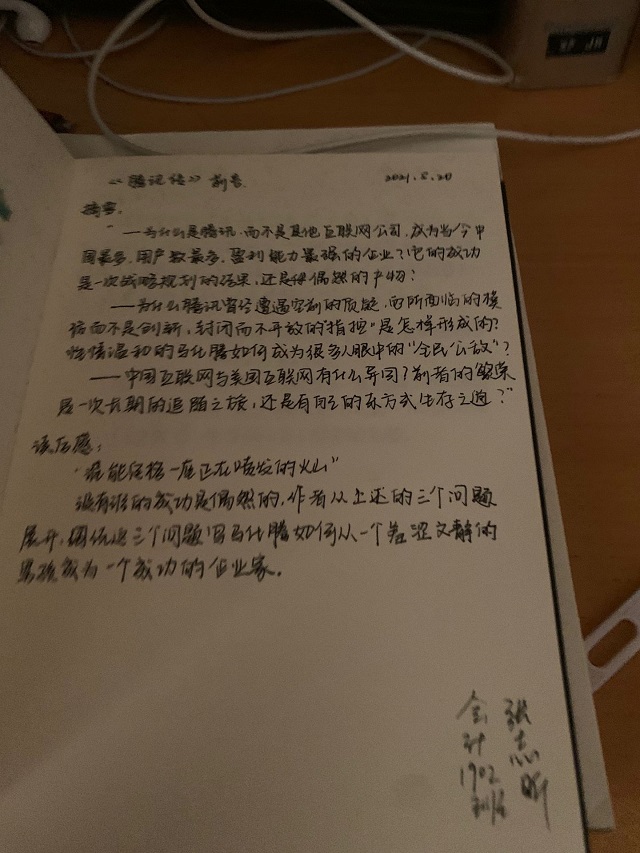 《腾讯传》前言 2021.8.20
摘要:
"——为什么是腾讯,而不是其他互联网公司,成为当今中
国最多、用户数最多、盈利能力最强的企业?它的成功
是一次战略规划的结果,还是偶然的产物?
——为什么腾讯曾经遭遇空前的质疑,而所面临的模
仿而不是创新,封闭而不开放的指控"是怎样形成的?
性情温和的马化腾如何成为很多人眼中的"全民公敌"?
——中国互联网与美国互联网有什么异同?前者的繁荣
是一次长期的追随之旅,还是有自己的东方式生存之道?"
读后感:
"谁能丈量一座正在喷发的火山"
没有谁的成功是偶然的,作者从上述的三个问题
展开,围绕这三个问题写马化腾如何从一个羞涩文静的
男孩成为一个成功的企业家。
张志昕
会计1902